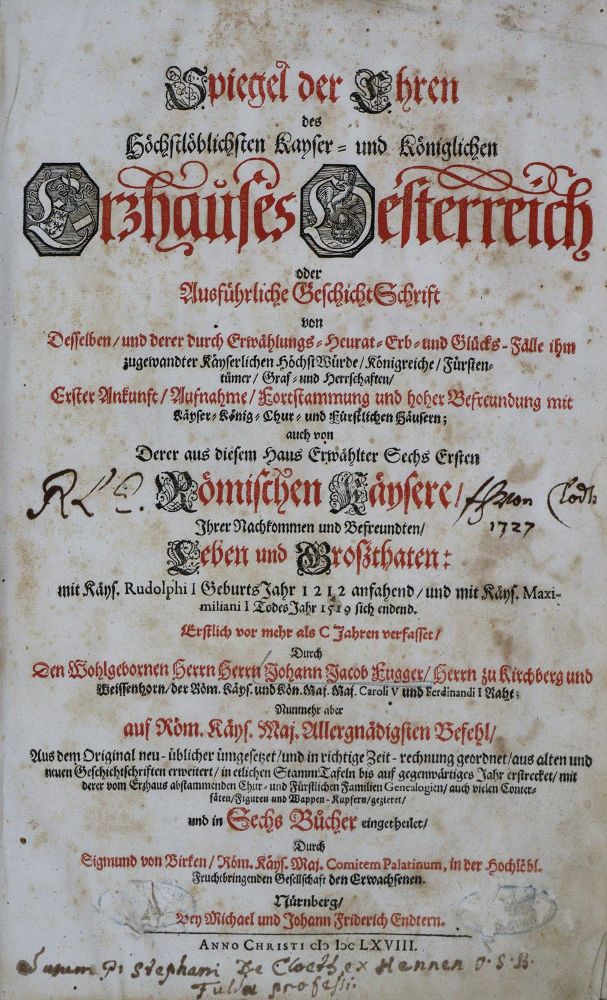 Spiegel der Ehren
des
Höchstlöblichsten Kayser- und Königlichen
Erzhauses Oesterreich
oder
Ausführliche GeschichtSchrift
von
Desselben/ und derer durch Erwählungs- Heurat- Erb- und Glücks-Fälle ihm
zugewandter Käyserlichen HöchstWürde/ Königreiche/ Fürsten-
tümer/ Graf- und Herrschaften/
Erster Ankunft/ Aufnahme/ Fortstammung und hoher Befreundung mit
Käyser- König- Chur- und Fürstlichen Häusern;
auch von
Derer aus diesem Haus Erwählter Sechs Ersten
Römischen Käysere/
1727
Ihrer Nachkommen und Befreundten/
Leben und Großthaten:
mit Käys. Rudolphi I GeburtsJahr 1212 anfahend/ und mit Käys. Maxi-
miliani I TodesJahr 1519 sich endend.
Erstlich vor mehr als C Jahren verfasset/
Durch
Den Wohlgebornen Herrn Herrn Johann Jacob Fugger/ Herrn zu Kirchberg und
Weissenhorn/ der Röm. Käys. und Kön. Maj. Maj. Caroli V und Ferdinandi I Raht;
Nunmehr aber
auf Röm. Käys. Maj. Allergnädigsten Befehl/
Aus dem Original neu-üblicher ümgesetzet/ und in richtige Zeit-rechnung geordnet/ aus alten und
neuen Geschichtschriften erweitert/ in etlichen StammTafeln bis auf gegenwärtiges Jahr erstrecket/ mit
derer vom Erzhaus abstammenden Chur- und Fürstlichen Familien Genealogien/ auch vielen Conter-
fäten/ Figuren und Wappen-Kupfern/ gezieret/
und in Sechs Bücher eingetheilet/
Durch
Sigmund von Birken/ Röm. Käys. Maj. Comitem Palatinum, in der Hochlöbl.
Fruchtbringenden Gesellschaft den Erwachsenen.
Nürnberg/
Bey Michael und Johann Friderich Endtern.
ANNO CHRISTI cIↃ IↃc LXVIII.
Sunm P. Stephani De Cloeth ex Hennen O.S.B.
Fulda professi.